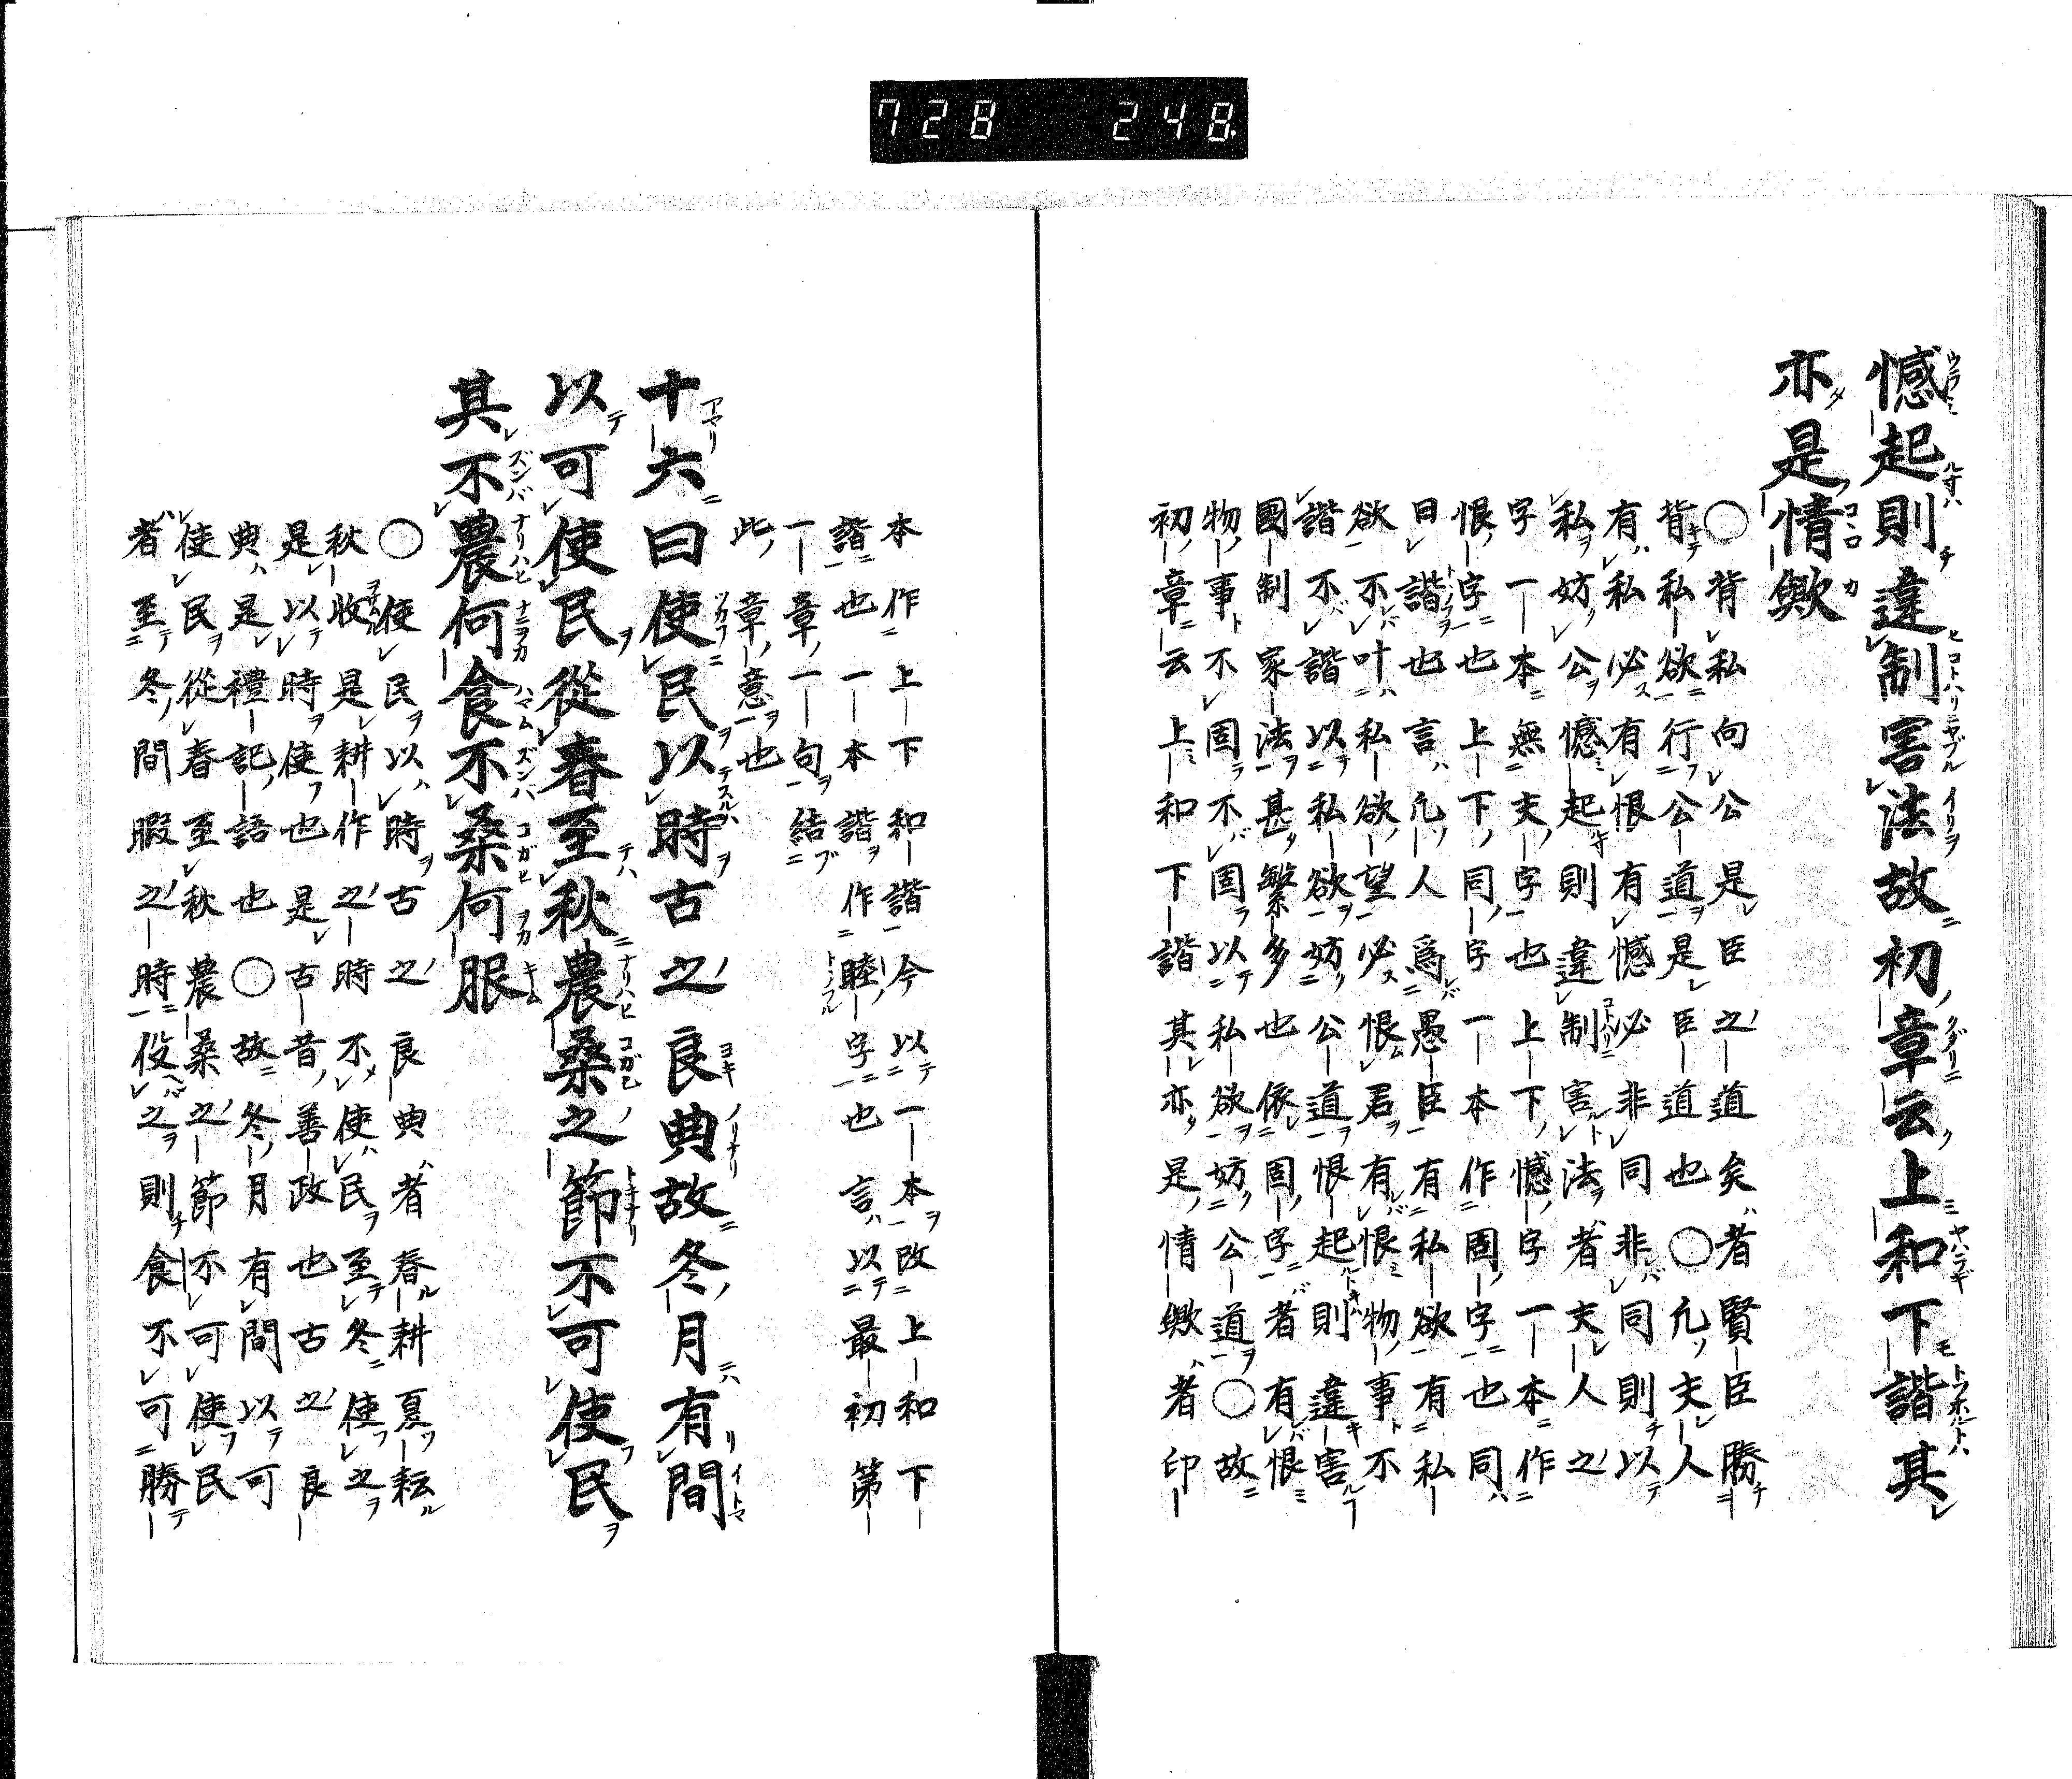 728 248
憾起則違制害法故初章云上和下諧其
亦是情歟
○背私向公是臣之道矣者賢臣勝
背私欲行公道是臣道也○凡夫人
有私必有恨有憾必非同非同則以
私妨公憾起則違制害法者夫人之
字一本無夫字也上下憾字一本作
恨字也上下同字一本作固字也同
曰諧也言凡人爲愚臣有私欲有私
欲不叶私欲望必恨君有恨物事不
諧不諧以私欲妨公道恨起則違害
國制家法甚繁多也依固字者有恨
物事不固不固以私欲妨公道○故
初章云上和下諧其亦是情歟者印
本作上下和諧今以一本改上和下
諧也一本諧作睦字也言以最初第
一章一句結
此章意也
十六曰使民以時古之良典故冬月有間
以可使民從春至秋農桑之節不可使民
其不農何食不桑何服
○使民以時古之良典者春耕夏耘
秋收是耕作之時不使民至冬使之
是以時使也是古昔善政也古之良
典是禮記語也○故冬月有間以可
使民從春至秋農桑之節不可使民
者至冬間暇之時役之則食不可勝